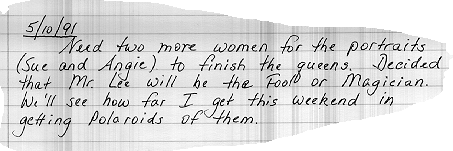 5/10/91
Need two more women for the portraits
(Sue and Angie) to finish the queens. Decided
that Mr. Lee will be the Fool or Magician.
We'll see how far I get this weekend in
getting Polaroids of them.